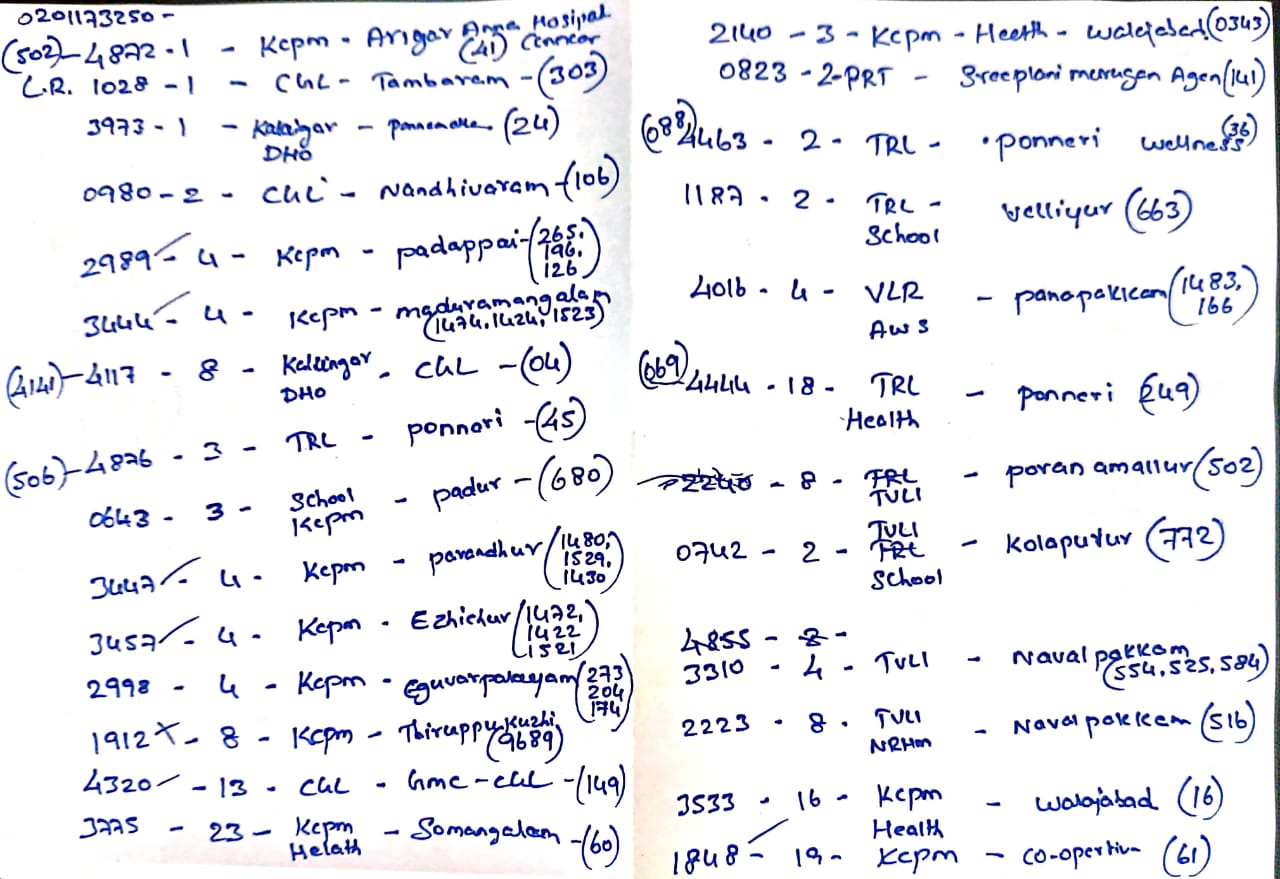 0201173250 -
(502)-4872-1 - Kcpm - Arigar Anna Hosipal
(41) Canncor
L.R. 1028 - 1 - CHL - Tambaram - (303)
3973 - 1 - Kalaigar - (24)
DHO
0980 - 2 - CHL - Nandhivaram - (106)
2989 - 4 - Kcpm - padappai - (265,
196,
126)
3444 - 4 - Kcpm - maduramangalam
(1474, 1424, 1523)
(4141)-4117 - 8 - Kaliengar - CHL - (04)
DHO
(506)-4876 - 3 - TRL - ponnari - (45)
0643 - 3 - School - padur - (680)
Kcpm
3447 - 4 - Kcpm - parandhur (1480,
1529,
1430)
3457 - 4 - Kcpm - Ezhichur (1472,
1422
1521)
2998 - 4 - Kcpm - Eguvarpalayam (273
204
174)
1912 X - 8 - Kcpm - Thiruppukuzhi
(9689)
4320 - 13 - CHL - Gmc - CHL - (149)
3775 - 23 - Kcpm - Somangalam - (60)
Helath
2140 - 3 - Kcpm - Heeth - Walajabad (0343)
0823 - 2 - PRT - Sreeplani murugan Agen (141)
(088) 4463 - 2 - TRL - ponneri wellness (36)
1187 - 2 - TRL - velliyur (663)
School
4016 - 4 - VLR - panapakkam (1483,
AWS 166)
(069) 4444 - 18 - TRL - ponneri (249)
Health
2240 - 8 - TRL - poranamallur (502)
TULI
TULI
0742 - 2 - TRL - Kolaputur (772)
School
4855 - 8 -
3310 - 4 - TVLI - Navalpakkam
(554, 525, 584)
2223 - 8 - TVLI - Navalpakkam (516)
NRHM
3533 - 16 - Kcpm - Walajabad (16)
Health
1848 - 19 - Kcpm - co-opertiv (61)